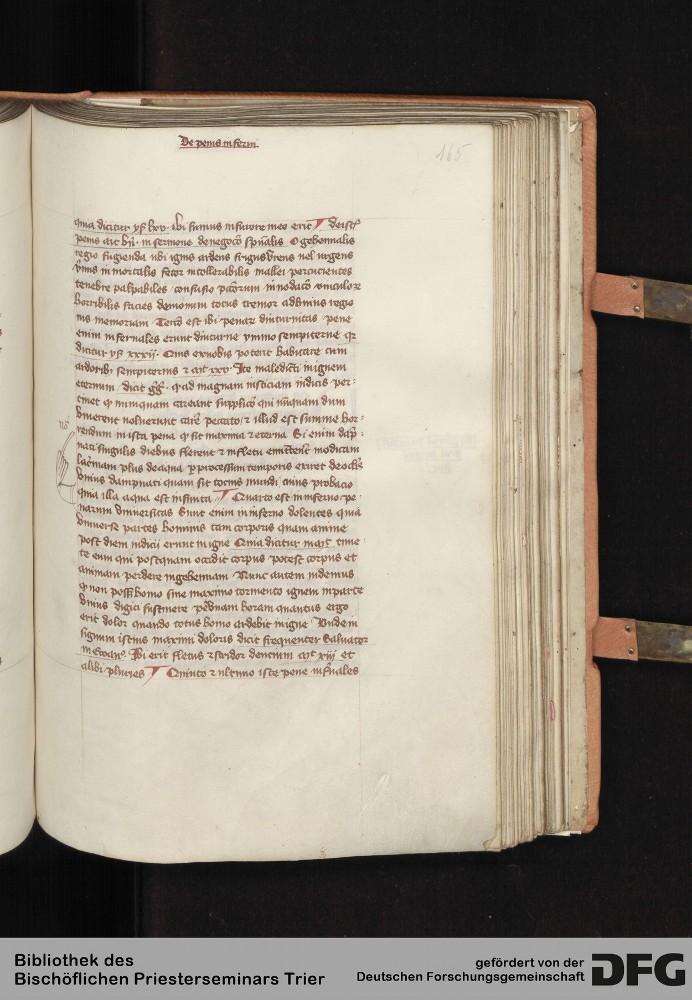 De penis inferni
165
quia dicitur ys lxv. ibi sumus in furore meo erit ¶ de istis
penis ait in sermone de negocio spualis O gehennalis
regio fugienda ubi ignis ardens frigus urens vel urgens
vermis in mortalis fetor intollerabilis mallei percucientes
tenebre palpabiles confusio pctorum in nodaco vinculorum
horribilis facies demonum totus tremor ad huius regio
nis memoriam Tercio est ibi penarum diuturnitas pene
enim infernales erunt diuturne ymmo sempiterne qr
dicitur ys xxxiij. Quis ex uobis poterit habitare cum
ardoribus sempiternis et mt xxv. Ite maledicti in ignem
eternum dicit gg. q ad magnam iusticiam iudicis per-
tinet q nunquam careant supplicio qui nunquam dum
viuerent noluerunt carere peccato et illud est summe hor-
rendum in ista pena q sit maxima et eterna Si enim dap-
nati singulis diebus flerent et in fletu emitterent modicam
lacrimam plus de aqua per processum temporis exiret de oculis
vnius dampnati quam sit tocius mundi cuius probacio
quia illa aqua est infinita ¶ Quarto est in inferno pe-
narum diuersitas Sunt enim in inferno dolentes quia
diuerse partes hominis tam corporis quam anime
post diem iudicii erunt in igne Quia dicitur time-
te eum qui postquam occidit corpus potest corpus et
animam perdere in gehennam Nunc autem videmus
q non posset homo sine maximo tormento ignem in parte
vnius digiti sustinere per vnam horam quantus ergo
erit dolor quando totus homo ardebit in igne Vnde in
signum istius maximi doloris dicit frequenter Saluator
in Ewang. Ibi erit fletus et stridor dencium mt xiij et
alibi pluries ¶ Quinto et ultimo iste pene infernales
Bibliothek des
Bischöflichen Priesterseminars Trier
gefördert von der
Deutschen Forschungsgemeinschaft
DFG